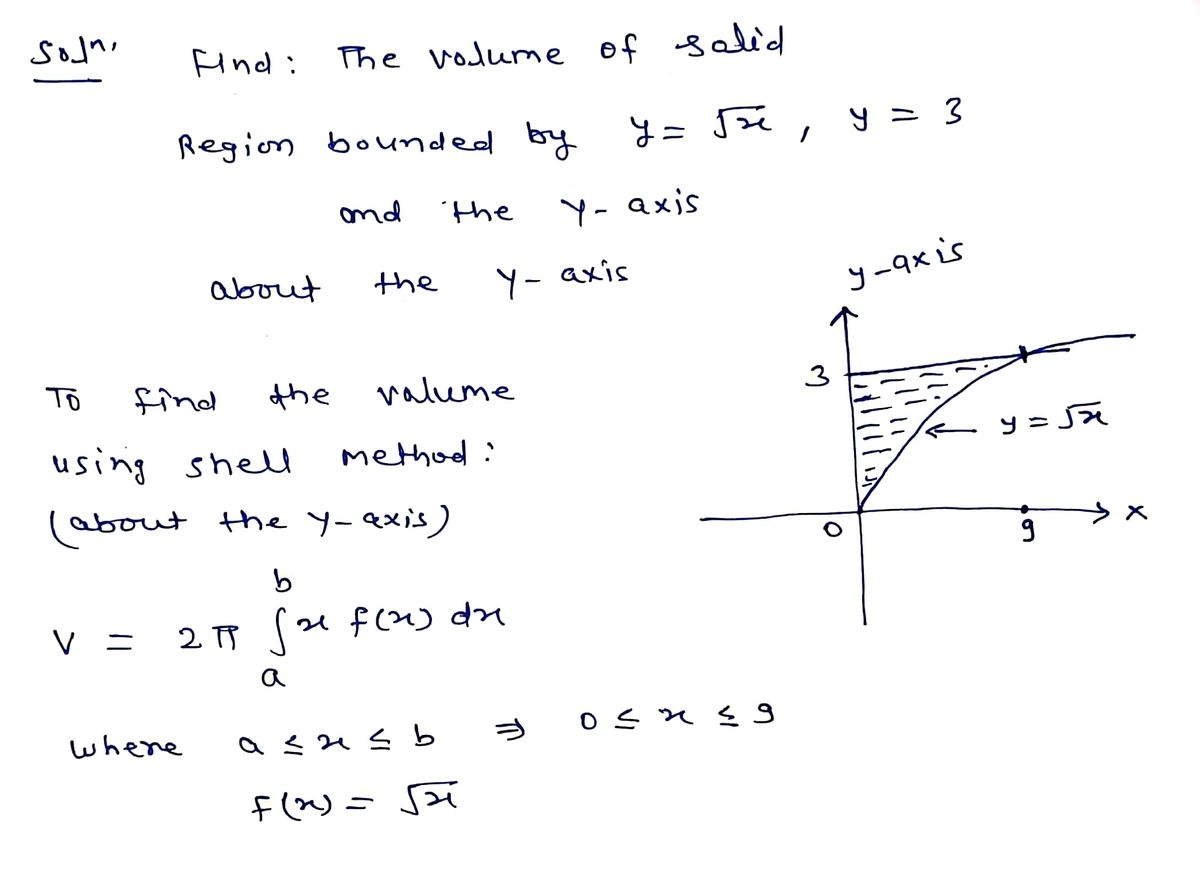 Soln.
Find: The volume of solid
Region bounded by y = √x , y = 3
and the y-axis
about the y-axis
y-axis
3
y = √x
0
9
x
To find the volume
using shell method:
(about the y-axis)
b
V = 2π ∫ x f(x) dx
a
where a ≤ x ≤ b ⇒ 0 ≤ x ≤ 9
f(x) = √x